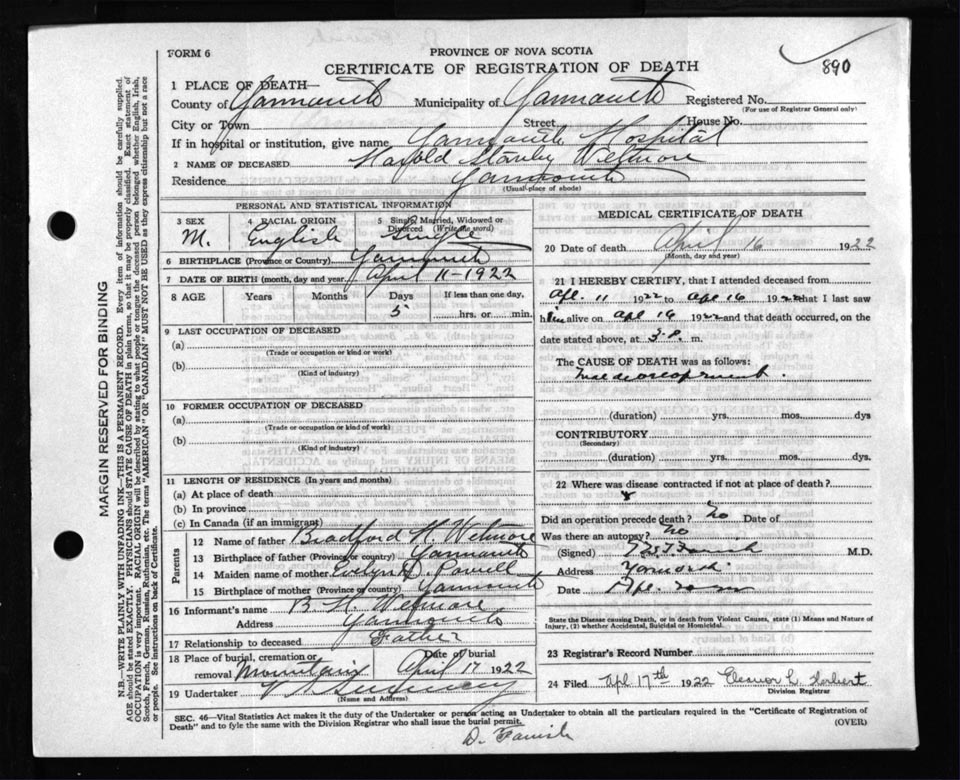 FORM 6
PROVINCE OF NOVA SCOTIA
CERTIFICATE OF REGISTRATION OF DEATH
890
1 PLACE OF DEATH—
County of Yarmouth Municipality of Yarmouth Registered No.
(For use of Registrar General only)
City or Town Street House No.
If in hospital or institution, give name Yarmouth Hospital
2 NAME OF DECEASED Harold Stanley Wetmore
Residence Yarmouth
(Usual place of abode)
PERSONAL AND STATISTICAL INFORMATION
3 SEX 4 RACIAL ORIGIN 5 Single, Married, Widowed or Divorced (Write the word)
M. English Single
6 BIRTHPLACE (Province or Country) Yarmouth
7 DATE OF BIRTH (month, day and year) April 11-1922
8 AGE Years Months Days If less than one day,
5 hrs. or min.
9 LAST OCCUPATION OF DECEASED
(a)
(Trade or occupation or kind or work)
(b)
(Kind of industry)
10 FORMER OCCUPATION OF DECEASED
(a)
(Trade or occupation or kind of work)
(b)
(Kind of industry)
11 LENGTH OF RESIDENCE (In years and months)
(a) At place of death
(b) In province
(c) In Canada (if an immigrant)
Parents
12 Name of father Bradford H. Wetmore
13 Birthplace of father (Province or country) Yarmouth
14 Maiden name of mother Evelyn D. Powell
15 Birthplace of mother (Province or country) Yarmouth
16 Informant's name B H. Wetmore
Address Yarmouth
17 Relationship to deceased Father
18 Place of burial, cremation or removal Mountain Date of burial April 17 1922
19 Undertaker
(Name and Address)
MEDICAL CERTIFICATE OF DEATH
20 Date of death April 16 1922
(Month, day and year)
21 I HEREBY CERTIFY, that I attended deceased from
Apl. 11 1922 to Apl 16 1922 that I last saw
him alive on Apl 16 1922 and that death occurred, on
date stated above, at 3 P. m.
The CAUSE OF DEATH was as follows:
(duration) yrs. mos. dys
CONTRIBUTORY
(Secondary)
(duration) yrs. mos. dys.
22 Where was disease contracted if not at place of death?
Did an operation precede death? No Date of
Was there an autopsy? No
(Signed) Farish M.D.
Address Yarmouth
Date Apl.
State the Disease causing Death, or in death from Violent Causes, state (1) Means and Nature of
Injury, (2) whether Accidental, Suicidal or Homicidal.
23 Registrar's Record Number
24 Filed Apl 17th 1922 Eleanor L. Herbert
Division Registrar
SEC. 46—Vital Statistics Act makes it the duty of the Undertaker or person acting as Undertaker to obtain all the particulars required in the "Certificate of Registration of
Death" and to fyle the same with the Division Registrar who shall issue the burial permit.
(OVER)
D. Farish
MARGIN RESERVED FOR BINDING
N.B.—WRITE PLAINLY WITH UNFADING INK—THIS IS A PERMANENT RECORD. Every item of information should be carefully supplied.
AGE should be stated EXACTLY. PHYSICIANS should STATE CAUSE OF DEATH in plain terms, so that it may be properly classified. Exact statement of
OCCUPATION is very important. RACIAL ORIGIN will be described by stating to what people or tongue the deceased person belonged whether English, Irish,
Scotch, French, German, Russian, Ruthenian, etc. The terms "AMERICAN" or "CANADIAN" MUST NOT BE USED as they express citizenship but not a race
or people. See instructions on back of Certificate.